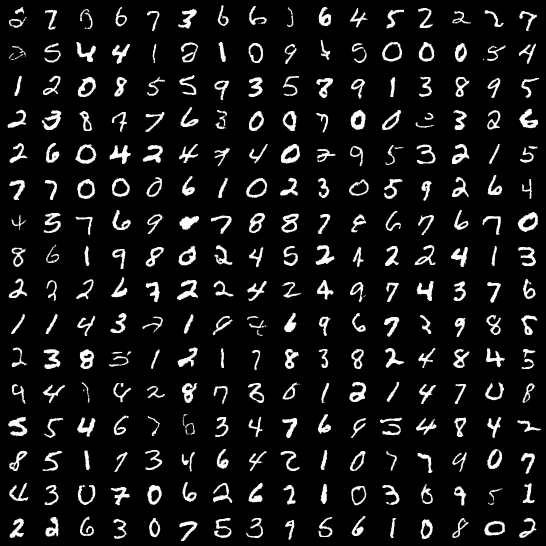 2 7 3 6 7 3 6 6 3 6 4 5 2 2 2 7
2 5 4 4 1 2 1 0 9 4 5 0 0 0 5 4
1 2 0 8 5 5 9 3 5 8 9 1 3 8 9 5
2 3 8 7 7 6 3 0 0 7 0 0 3 2 6
2 6 0 4 2 4 7 4 0 2 9 5 3 2 1 5
7 7 0 0 0 6 1 0 2 3 0 5 9 2 6 4
4 3 7 6 9 7 8 8 7 8 6 7 6 7 0
8 6 1 9 8 0 2 4 5 2 2 2 4 1 3
2 2 2 6 7 2 2 4 2 4 9 7 4 3 7 6
1 1 4 3 2 1 9 6 9 6 7 2 9 8 5
2 3 8 3 1 2 1 7 8 3 8 2 4 8 4 5
9 4 1 9 2 8 7 3 0 1 2 1 4 7 0 8
5 5 4 6 7 6 3 4 7 6 9 5 4 8 4 2
8 5 1 7 3 4 6 4 2 1 0 7 7 9 0 7
4 3 0 7 0 6 2 6 2 1 0 3 8 9 5 1
2 2 6 3 0 7 5 3 9 5 6 1 0 8 0 2